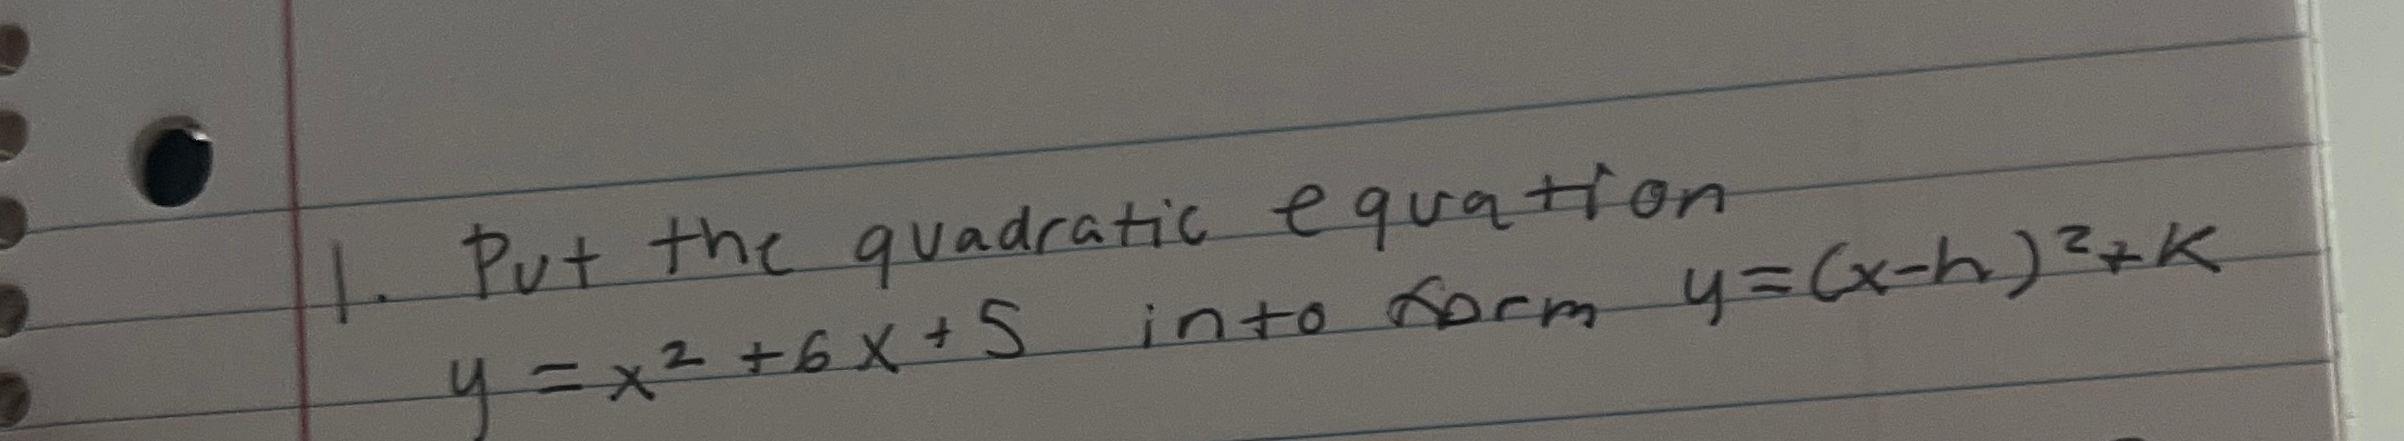 1. Put the quadratic equation
y = x² + 6x + 5 into form y = (x-h)² + k